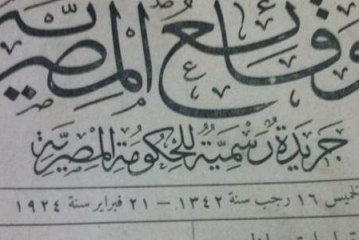 وقائع المصرية
جريدة رسمية للحكومة المصرية
خميس ١٦ رجب سنة ١٣٤٢ — ٢١ فبراير سنة ١٩٢٤